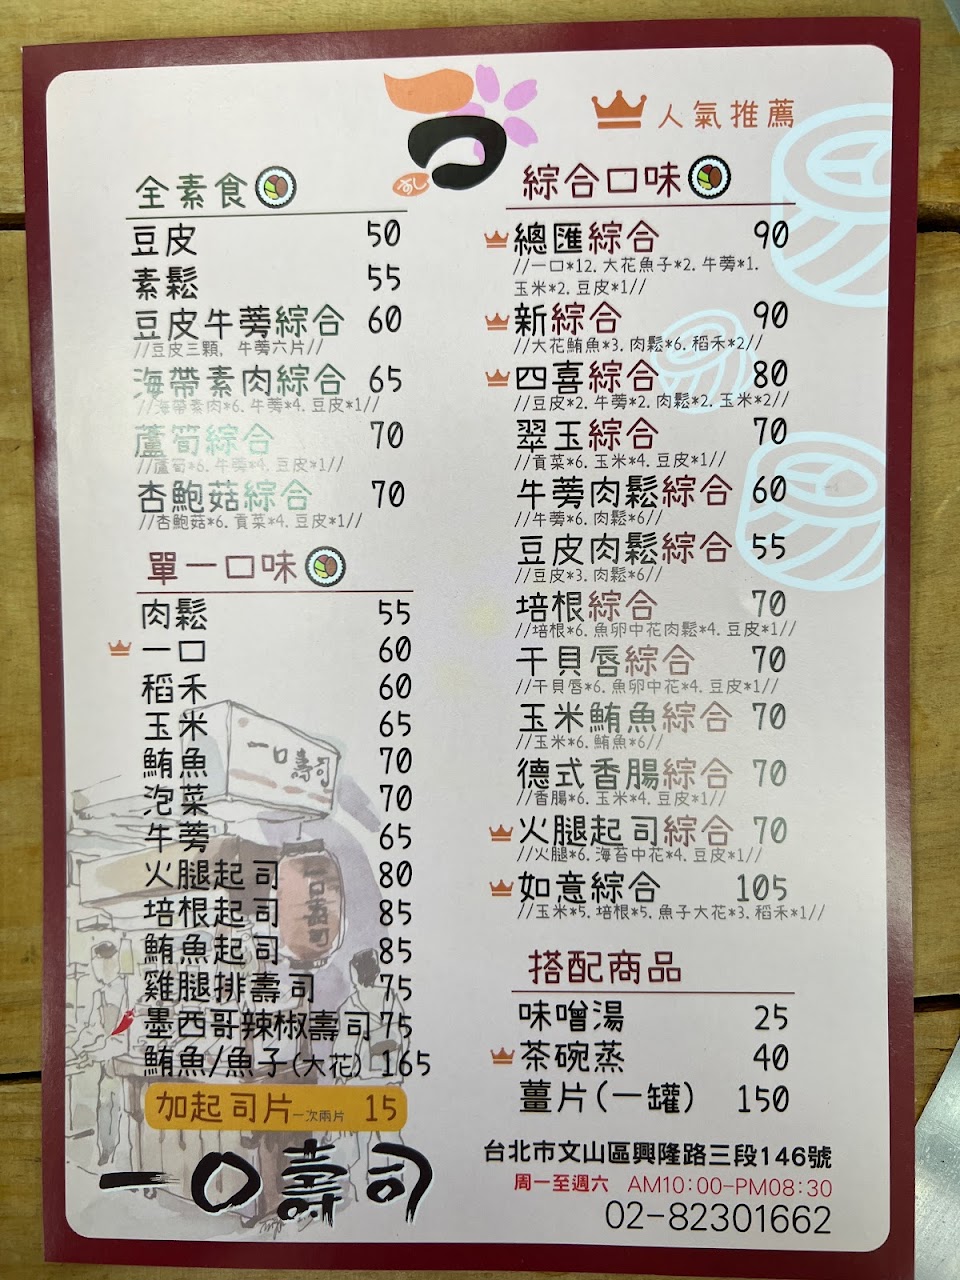 人氣推薦
すし
全素食
豆皮 50
素鬆 55
豆皮牛蒡綜合 60
//豆皮三顆, 牛蒡六片//
海帶素肉綜合 65
//海帶素肉*6. 牛蒡*4. 豆皮*1//
蘆筍綜合 70
//蘆筍*6. 牛蒡*4. 豆皮*1//
杏鮑菇綜合 70
//杏鮑菇*6. 貢菜*4. 豆皮*1//
單一口味
肉鬆 55
一口 60
稻禾 60
玉米 65
鮪魚 70
泡菜 70
牛蒡 65
火腿起司 80
培根起司 85
鮪魚起司 85
雞腿排壽司 75
墨西哥辣椒壽司 75
鮪魚/魚子(大花) 165
加起司片一次兩片 15
一口壽司
一口壽司
一口壽司
綜合口味
總匯綜合 90
//一口*12. 大花魚子*2. 牛蒡*1.
玉米*2. 豆皮*1//
新綜合 90
//大花鮪魚*3. 肉鬆*6. 稻禾*2//
四喜綜合 80
//豆皮*2. 牛蒡*2. 肉鬆*2. 玉米*2//
翠玉綜合 70
//貢菜*6. 玉米*4. 豆皮*1//
牛蒡肉鬆綜合 60
//牛蒡*6. 肉鬆*6//
豆皮肉鬆綜合 55
//豆皮*3. 肉鬆*6//
培根綜合 70
//培根*6. 魚卵中花肉鬆*4. 豆皮*1//
干貝唇綜合 70
//干貝唇*6. 魚卵中花*4. 豆皮*1//
玉米鮪魚綜合 70
//玉米*6. 鮪魚*6//
德式香腸綜合 70
//香腸*6. 玉米*4. 豆皮*1//
火腿起司綜合 70
//火腿*6. 海苔中花*4. 豆皮*1//
如意綜合 105
//玉米*5. 培根*5. 魚子大花*3. 稻禾*1//
搭配商品
味噌湯 25
茶碗蒸 40
薑片(一罐) 150
台北市文山區興隆路三段146號
周一至週六 AM10:00-PM08:30
02-82301662